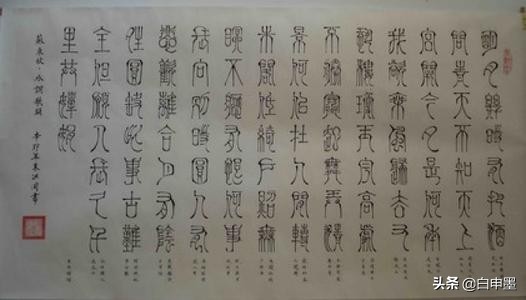 明月幾時有把酒
問青天不知天上
宮闕今夕是何年
我欲乘風歸去又
恐瓊樓玉宇高處
不勝寒起舞弄清
影何似在人間轉
朱閣低綺戶照無
眠不應有恨何事
長向別時圓人有
悲歡離合月有陰
晴圓缺此事古難
全但願人長久千
里共嬋娟
蘇東坡水調歌頭 辛卯年
头条 @白申墨